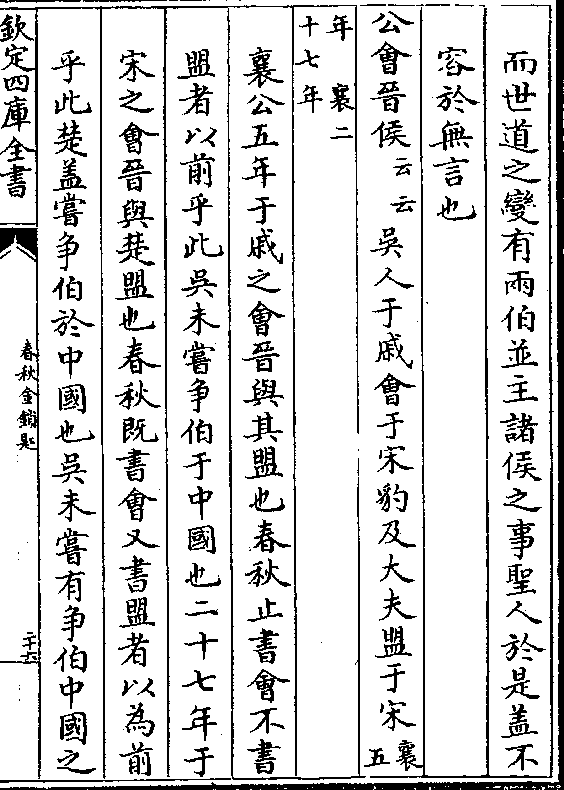 而世道之變有兩伯並主諸侯之事聖人於是盖不
容於無言也
公會晉侯云云吳人于戚會于宋豹及大夫盟于宋襄五
年襄二
十七年
襄公五年于戚之會晉與其盟也春秋止書會不書
盟者以前乎此吳未嘗争伯于中國也二十七年于
宋之會晉與楚盟也春秋既書會又書盟者以為前
乎此楚盖嘗争伯於中國也吳未嘗有争伯中國之
欽定四庫全書
春秋金鎖匙
二十六